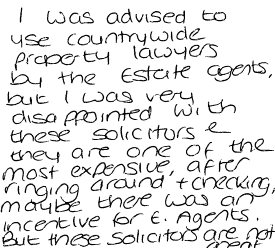 I was advised to
use countrywide
property lawyers
by the Estate agents,
but I was very
disappointed with
these solicitors &
they are one of the
most expensive, after
ringing around + checking,
maybe there was an
incentive for E. Agents.
But these solicitors are not